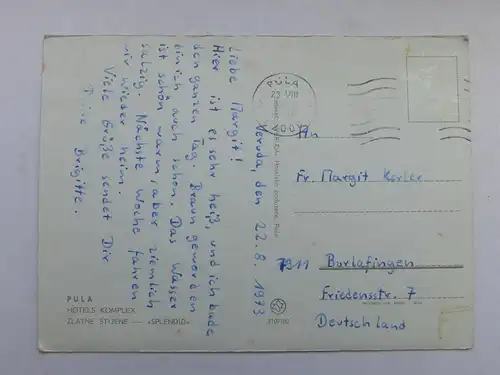 Veruda, den 22.8.1973
Liebe Margit!
Hier ist es sehr heiß, und ich bade
den ganzen Tag. Braun geworden
bin ich auch schon. Das Wasser
ist schön warm, aber ziemlich
salzig. Nächste Woche fahren
wir wieder heim.
Viele Grüße sendet Dir
Deine Brigitte.
PULA
HOTELS KOMPLEX
ZLATNE STIJENE — «SPLENDID»
PULA
23 VIII
An
Fr. Margit
7911 Burlafingen
Friedensstr. 7
Deutschland